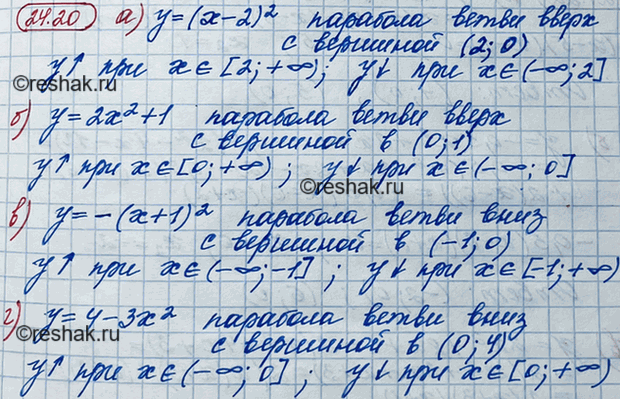 24.20 а) y = (x-2)² парабола ветви вверх
с вершиной (2; 0)
y↑ при x∈[2; +∞); y↓ при x∈(-∞; 2]
б) y = 2x²+1 парабола ветви вверх
с вершиной в (0; 1)
©reshak.ru
y↑ при x∈[0; +∞) ; y↓ при x∈(-∞; 0]
©reshak.ru
в) y = -(x+1)² парабола ветви вниз
с вершиной в (-1; 0)
y↑ при x∈(-∞; -1] ; y↓ при x∈[-1; +∞)
г) y = 4-3x² парабола ветви вниз
©reshak.ru
с вершиной в (0; 4)
y↑ при x∈(-∞; 0] ; y↓ при x∈[0; +∞)
©reshak.ru